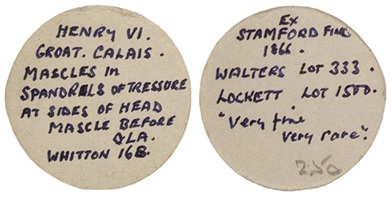 HENRY VI.
GROAT. CALAIS.
MASCLES IN
SPANDRELS OF TRESSURE
AT SIDES OF HEAD
MASCLE BEFORE
LA.
WHITTON 16B.
Ex
STAMFORD FIND
1866.
WALTERS LOT 333.
LOCKETT LOT 1580.
"Very fine
Very rare".
250